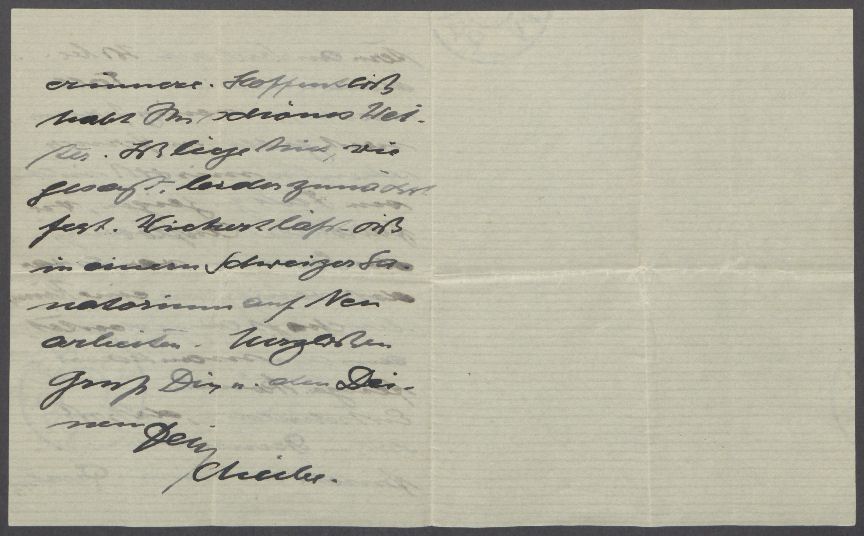 erinnere. Hoffentlich
habt Ihr schönes Wet-
ter. Ich liege hier, wie
gesagt, leider zunächst
fest. Rickert läßt sich
in einem Schweizer Sa-
natorium auf Neu
arbeiten. Herzlichen
Gruß Dir u. den Dei-
nen Dein